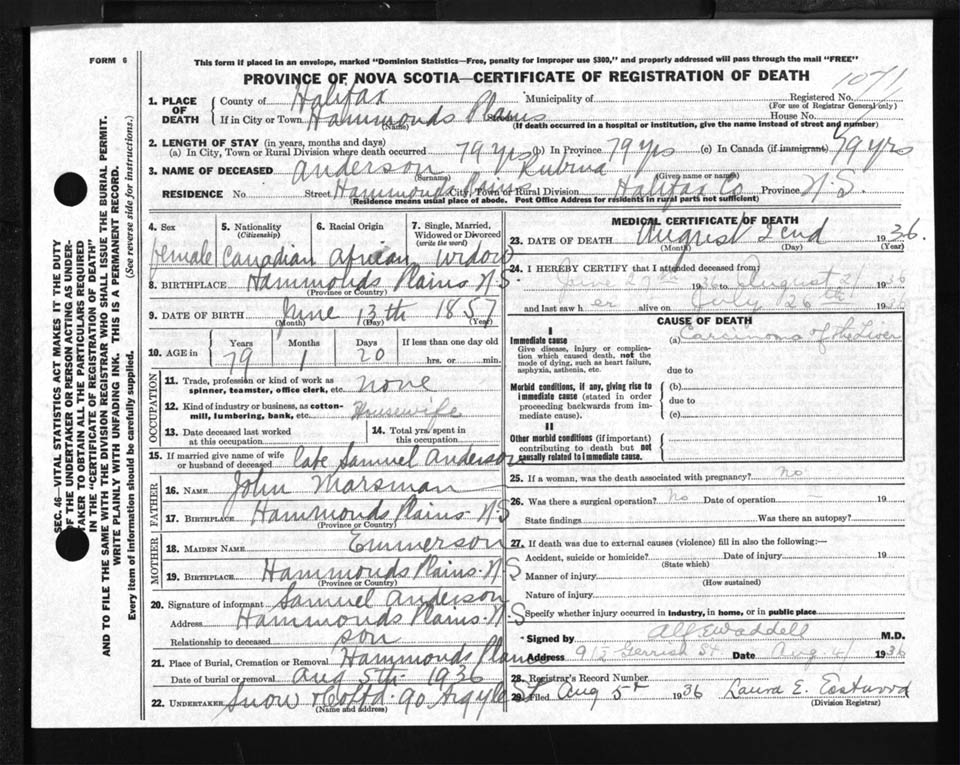 FORM 6
This form if placed in an envelope, marked "Dominion Statistics—Free, penalty for improper use $300," and properly addressed will pass through the mail "FREE"
PROVINCE OF NOVA SCOTIA—CERTIFICATE OF REGISTRATION OF DEATH
1071
1. PLACE OF DEATH
County of Halifax Municipality of Registered No.
(For use of Registrar General only)
If in City or Town Hammonds Plains Street House No.
(Name) (If death occurred in a hospital or institution, give the name instead of street and number)
2. LENGTH OF STAY (in years, months and days)
(a) In City, Town or Rural Division where death occurred 79 yrs (b) In Province 79 yrs (c) In Canada (if immigrant) 79 yrs
3. NAME OF DECEASED Anderson Rubina
(Surname) (Given name or names)
RESIDENCE No. Street Hammonds Plains City, Town or Rural Division Halifax Co Province N.S.
(Residence means usual place of abode. Post Office Address for residents in rural parts not sufficient)
4. Sex 5. Nationality (Citizenship) 6. Racial Origin 7. Single, Married, Widowed or Divorced (write the word)
female Canadian African widow
8. BIRTHPLACE Hammonds Plains N S
(Province or Country)
9. DATE OF BIRTH June 13th 1857
(Month) (Day) (Year)
10. AGE in Years Months Days If less than one day old
79 1 20 hrs. or min.
OCCUPATION
11. Trade, profession or kind of work as spinner, teamster, office clerk, etc. none
12. Kind of industry or business, as cotton-mill, lumbering, bank, etc. Housewife
13. Date deceased last worked at this occupation 14. Total yrs. spent in this occupation
15. If married give name of wife or husband of deceased late Samuel Anderson
FATHER
16. NAME John Marsman
17. BIRTHPLACE Hammonds Plains N.S
(Province or Country)
MOTHER
18. MAIDEN NAME Emmerson
19. BIRTHPLACE Hammonds Plains. N.S
(Province or Country)
20. Signature of informant Samuel Anderson
Address Hammonds Plains. N S
Relationship to deceased son
21. Place of Burial, Cremation or Removal Hammonds Plains
Date of burial or removal Aug 5th 1936
22. UNDERTAKER Snow & Co Ltd. 90 Argyle St
(Name and address)
MEDICAL CERTIFICATE OF DEATH
23. DATE OF DEATH August 2nd 1936.
(Month) (Day) (Year)
24. I HEREBY CERTIFY that I attended deceased from
June 27th 1936 to August 2/ 1936
and last saw her alive on July 26th 1936
CAUSE OF DEATH
I
Immediate cause (a) Carcinoma of the Liver
Give disease, injury or complication which caused death, not the mode of dying, such as heart failure, asphyxia, asthenia, etc.
due to
Morbid conditions, if any, giving rise to immediate cause (stated in order proceeding backwards from immediate cause).
(b)
due to
(c)
II
Other morbid conditions (if important) contributing to death but not causally related to immediate cause.
25. If a woman, was the death associated with pregnancy? no
26. Was there a surgical operation? No Date of operation 19
State findings Was there an autopsy?
27. If death was due to external causes (violence) fill in also the following:—
Accident, suicide or homicide? Date of injury 19
(State which)
Manner of injury
(How sustained)
Nature of injury
Specify whether injury occurred in industry, in home, or in public place
Signed by Alf E Waddell M.D.
Address 91½ Gerrish St Date Aug 4/ 1936
28. Registrar's Record Number
29. Filed Aug 5th 1936 Laura E. Eastwood
(Division Registrar)
SEC. 46—VITAL STATISTICS ACT MAKES IT THE DUTY
OF THE UNDERTAKER OR PERSON ACTING AS UNDER-
TAKER TO OBTAIN ALL THE PARTICULARS REQUIRED
IN THE "CERTIFICATE OF REGISTRATION OF DEATH"
AND TO FILE THE SAME WITH THE DIVISION REGISTRAR WHO SHALL ISSUE THE BURIAL PERMIT.
WRITE PLAINLY WITH UNFADING INK. THIS IS A PERMANENT RECORD.
Every item of information should be carefully supplied. (See reverse side for instructions.)